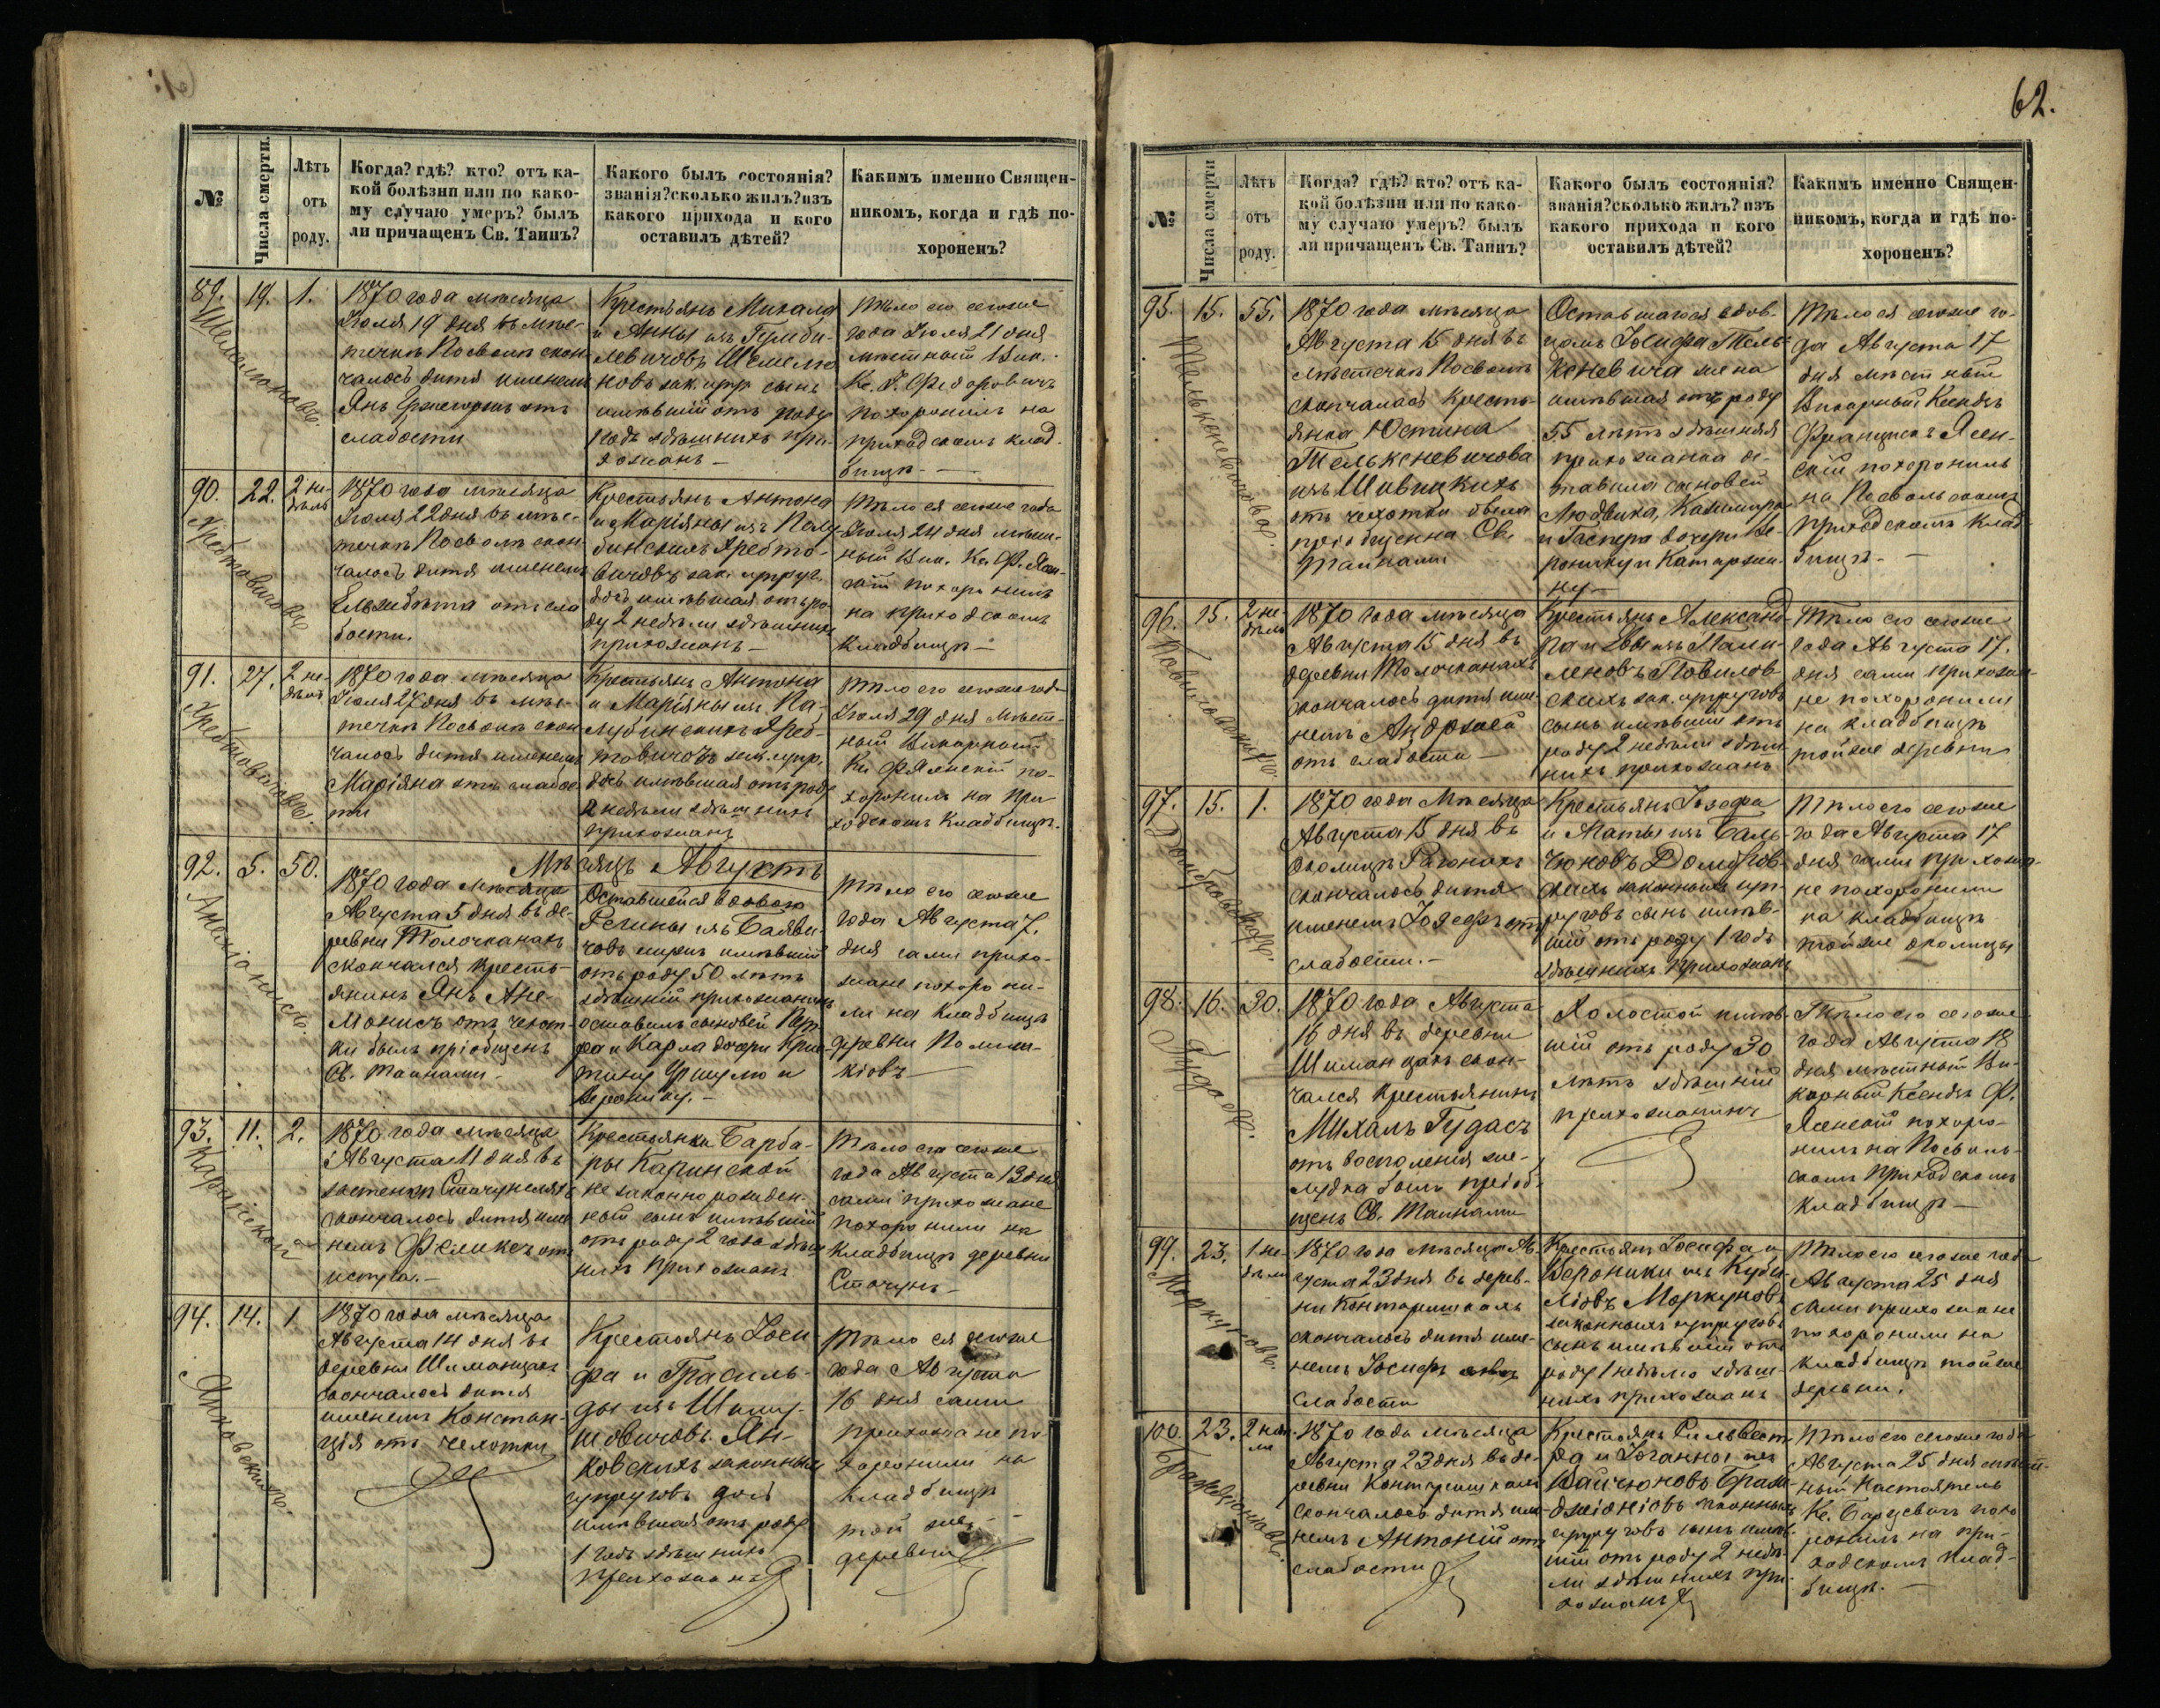 62.
№
Числа смерти.
Лѣтъ
отъ
роду.
Когда? гдѣ? кто? отъ ка-
кой болѣзни или по како-
му случаю умеръ? былъ
ли причащенъ Св. Таинъ?
Какого былъ состоянія?
званія? сколько жилъ? изъ
какого прихода и кого
оставилъ дѣтей?
Какимъ именно Священ-
никомъ, когда и гдѣ по-
хороненъ?
89.
19.
1.
1870 года мѣсяца
Іюля 19 дня въ мѣс-
течкѣ Посволѣ скон
чалось дитя именемъ
слабости
Крестьянъ Михала
и Анны изъ Гумби-
левичовъ Шемелю
новъ зак. супр. сынъ
имѣвшій отъ роду
1 годъ здѣшнихъ при-
хожанъ —
Тѣло его сегоже
года Іюля 21 дня
мѣстный Вик.
Кс. Ф. Федоровичъ
похоронилъ на
приходскомъ клад-
бищѣ. —
90.
22.
2 не-
дѣль
1870 года мѣсяца
Іюля 22 дня въ мѣс-
течкѣ Посволѣ скон
чалось дитя именемъ
Ельжбѣта отъ сла
бости.
Крестьянъ Антона
и Маріяны изъ Палу-
бинскихъ Хребто-
вичовъ зак. супруг.
дочь имѣвшая отъ ро-
ду 2 недѣли здѣшнихъ
прихожанъ —
Тѣло ея сегоже года
Іюля 24 дня мѣст-
ный Вик. Кс. Ф. Ясен-
скій похоронилъ
на приходскомъ
кладбищѣ —
91.
27.
2 не-
дѣль
Хребтовичовъ.
1870 года мѣсяца
Іюля 27 дня въ мѣс-
течкѣ Посволѣ скон
чалось дитя именемъ
Маріяна отъ слабос
ти
Крестьянъ Антона
и Маріяны изъ Па-
лубинскихъ Хреб-
товичовъ зак. супр.
дочь имѣвшая отъ роду
2 недѣли здѣшнихъ
прихожанъ
Тѣло его сегоже года
Іюля 29 дня мѣст-
ный Викарный
Кс. Ф Ясенскій по-
хоронилъ на при
ходскомъ кладбищѣ.
Мѣсяцъ Августъ
92.
5.
50.
1870 года мѣсяца
Августа 5 дня въ де-
ревни Толочканахъ
скончался кресть-
янинъ Янъ Ане-
ліонисъ отъ чехот-
ки былъ пріобщенъ
Св. Тайнами —
Оставшейся вдовою
Регины изъ Баяви-
човъ мужъ имѣвшій
отъ роду 50 лѣтъ
здѣшній прихожанинъ
оставилъ сыновей Пет-
ра и Карла дочери Крис-
тину Уршулю и
Веронику. —
Тѣло его сегоже
года Августа 7.
дня сами прихо-
жане похорони-
ли на кладбищѣ
деревни
93.
11.
2.
1870 года мѣсяца
Августа 11 дня въ
застенкѣ
скончалось дитя име
немъ Феликсъ отъ
Крестьянки Барба-
ры Карпинской
незаконно рожден-
ный сынъ имѣвшій
отъ роду 2 года здѣш
нихъ прихожанъ
Тѣло его сегоже
года Августа 13 дня
сами прихожане
похоронили на
кладбищѣ деревни
Стачунъ —
94.
14.
1
Янковскихъ.
1870 года мѣсяца
Августа 14 дня въ
деревни Шиманцахъ
скончалось дитя
именемъ Констан-
ція отъ чехотки
Крестьянъ Іоси
фа и Грасиль-
ды изъ Шиму-
шовичовъ Ян-
ковскихъ законныхъ
супруговъ дочь
имѣвшая отъ роду
1 годъ здѣшнихъ
прихожанъ
Тѣло ея сегоже
года Августа
16 дня сами
прихожане по-
хоронили на
кладбищѣ
той же
деревни
№
Числа смерти
Лѣтъ
отъ
роду.
Когда? гдѣ? кто? отъ ка-
кой болѣзни или по како-
му случаю умеръ? былъ
ли причащенъ Св. Таинъ?
Какого былъ состоянія?
званія? сколько жилъ? изъ
какого прихода и кого
оставилъ дѣтей?
Какимъ именно Священ-
никомъ, когда и гдѣ по-
хороненъ?
95.
15.
55.
1870 года мѣсяца
Августа 15 дня въ
мѣстечкѣ Посволѣ
скончалась кресть-
янка Юстина
Телькеневичова
изъ Шивицкихъ
отъ чехотки была
пріобщенна Св.
Тайнами
Оставшагося вдов-
цомъ Іосифа Тель-
кеневича жена
имѣвшая отъ роду
55 лѣтъ здѣшняя
прихожанка ос-
тавила сыновей
Людвика, Казимира
и Гаспера дочери Ве-
ронику и Катаржи-
ну —
Тѣло ея сегоже го-
да Августа 17
дня мѣстный
Викарный Ксендзъ
Францискъ Ясен-
скій похоронилъ
на Посвольскомъ
приходскомъ клад-
бищѣ. —
96.
15.
2 не-
дѣль
1870 года мѣсяца
Августа 15 дня въ
деревни Толочканахъ
скончалось дитя име-
немъ Андржей
отъ слабости —
Крестьянъ Александ-
ра и Евы изъ Мали-
леновъ Повилов-
скихъ зак. супруговъ
сынъ имѣвшій отъ
роду 2 недѣли здѣш
нихъ прихожанъ
Тѣло его сегоже
года Августа 17.
дня сами прихожа-
не похоронили
на кладбищѣ
тойже деревни
97.
15.
1.
Домбровскихъ.
1870 года Мѣсяца
Августа 15 дня въ
околицѣ
скончалось дитя
именемъ Іозефъ отъ
слабости. —
Крестьянъ Іозефа
и Марты изъ Баль-
чюновъ Домбров-
скихъ законныхъ суп-
руговъ сынъ имѣв-
шій отъ роду 1 годъ
здѣшнихъ прихожанъ
Тѣло его сегоже
года Августа 17
дня сами прихожа-
не похоронили
на кладбищѣ
тойже околицы
98.
16.
30.
1870 года Августа
16 дня въ деревни
Шиманцахъ скон-
чался крестьянинъ
Михалъ Гудасъ
отъ воспаленія же-
лудка былъ пріоб-
щенъ Св. Тайнами
Холостой имѣв-
шій отъ роду 30
лѣтъ здѣшній
прихожанинъ
Тѣло его сегоже
года Августа 18
дня мѣстный Ви-
карный Ксендзъ Ф.
Ясенскій похоро-
нилъ на Посволь-
скомъ приходскомъ
кладбищѣ —
99.
23.
1 не-
дѣли
1870 года мѣсяца Ав-
густа 23 дня въ дерев-
ни Контаришкахъ
скончалось дитя име-
немъ Іосифъ отъ
слабости
Крестьянъ Іосифа и
Вероники изъ Куби-
ліовъ Моркуновъ
законныхъ супруговъ
сынъ имѣвшій отъ
роду 1 недѣлю здѣш-
нихъ прихожанъ
Тѣло его сегоже года
Августа 25 дня
сами прихожане
похоронили на
кладбищѣ тойже
деревни.
100.
23.
1870 года мѣсяца
Августа 23 дня въ де-
ревни Контаришкахъ
скончалось дитя име-
немъ Антоній отъ
слабости
Крестьянъ Сильвест-
ра и Іоганны изъ
законныхъ
супруговъ сынъ имѣв-
шій отъ роду 2 недѣ-
ли здѣшнихъ при-
хожанъ
Тѣло его сегоже года
Августа 25 дня мѣст-
ный Настоятель
Кс. похо
ронилъ на при-
ходскомъ клад-
бищѣ. —